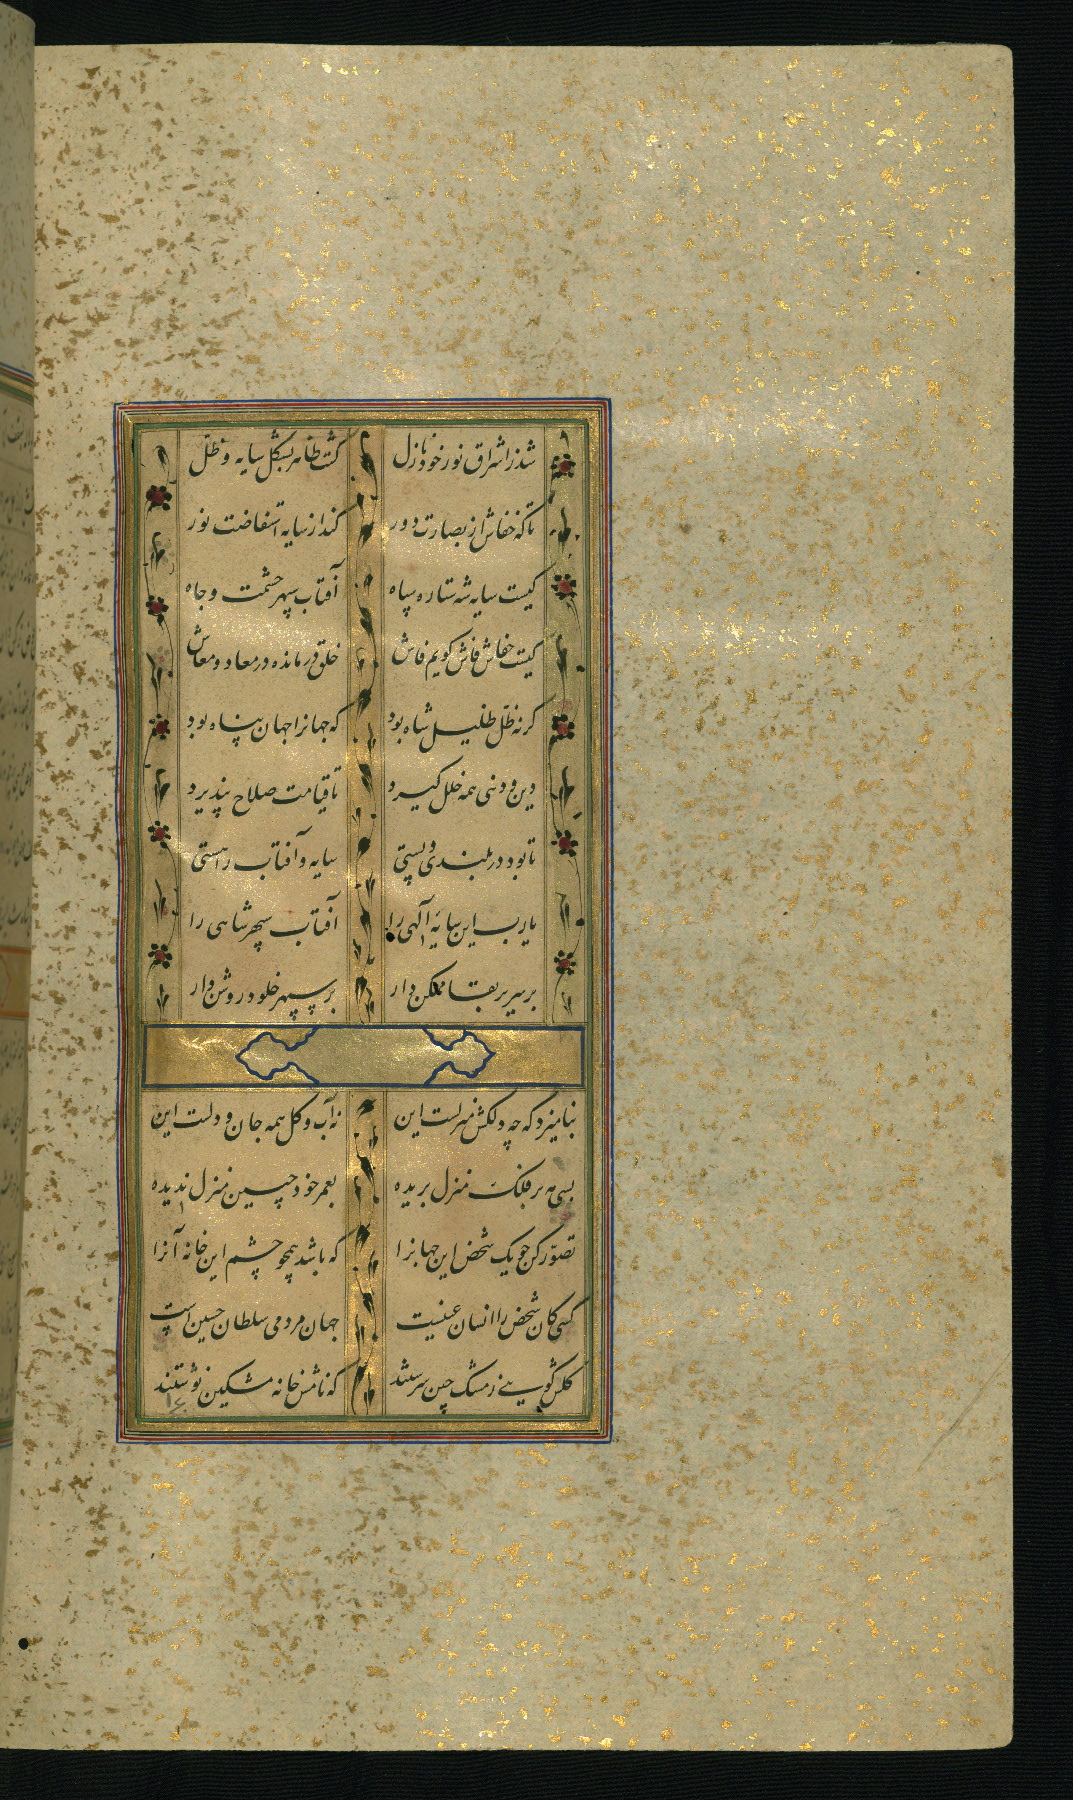 شد ز اشراق نور خود نازل گشت ظاهر بشکل سایه و ظل
تا که خفاش از بصارت دور کند از سایه استفاضت نور
کیست سایه شه ستاره سپاه آفتاب سپهر حشمت و جاه
کیست خفاش فاش کویم فاش خلق در مانده در معاد و معاش
کر نه ظل طفیل شاه بود که جهانرا جهان پناه بود
دین و دنی همه خلل کیرد تا قیامت صلاح نپذیرد
تا بود در بلندی و پستی سایه و آفتاب را هستی
یارب این سایهٔ الهی را آفتاب سپهر شاهی را
بر سریر بقا ممکن دار بر سپهر خلود روشن دار
بنامیزد که چه دلکش منزلست این نه آب و کل همه جان و دلست این
بسی مه بر فلک منزل بریده بعمر خود چنین منزل ندیده
تصور کن چو یک شخص این جهانرا که باشد همچو چشم این خانه آنرا
کسی کان شخص را انسان عینست جهان مردمی سلطان حسین است
کلش گویی ز مشک چین سرشتند که نامش خانه مشکین نوشتند